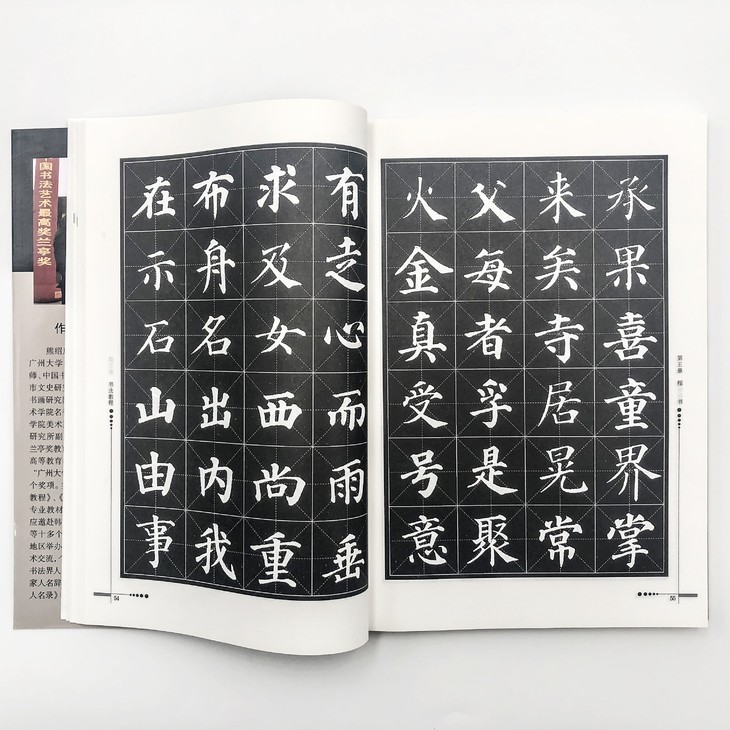 国书法艺术最高奖兰亭奖
作
熊绍
广州大学
师、中国书
市文史研
书画研究
术学院名
学院美术
研究所副
兰亭奖教
高等教育
“广州大
个奖项。
教程》、《
专业教材
应邀赴韩
等十多个
地区举办
术交流,
书法界人
家人名辞
人名录》
书法教程
在布求有
示舟及走
石名女心
山出西而
由内尚雨
事我重垂
54
火父来承
金每矣果
真者寺喜
受孚居童
号是晃界
意聚常掌
第五章 楷书
55